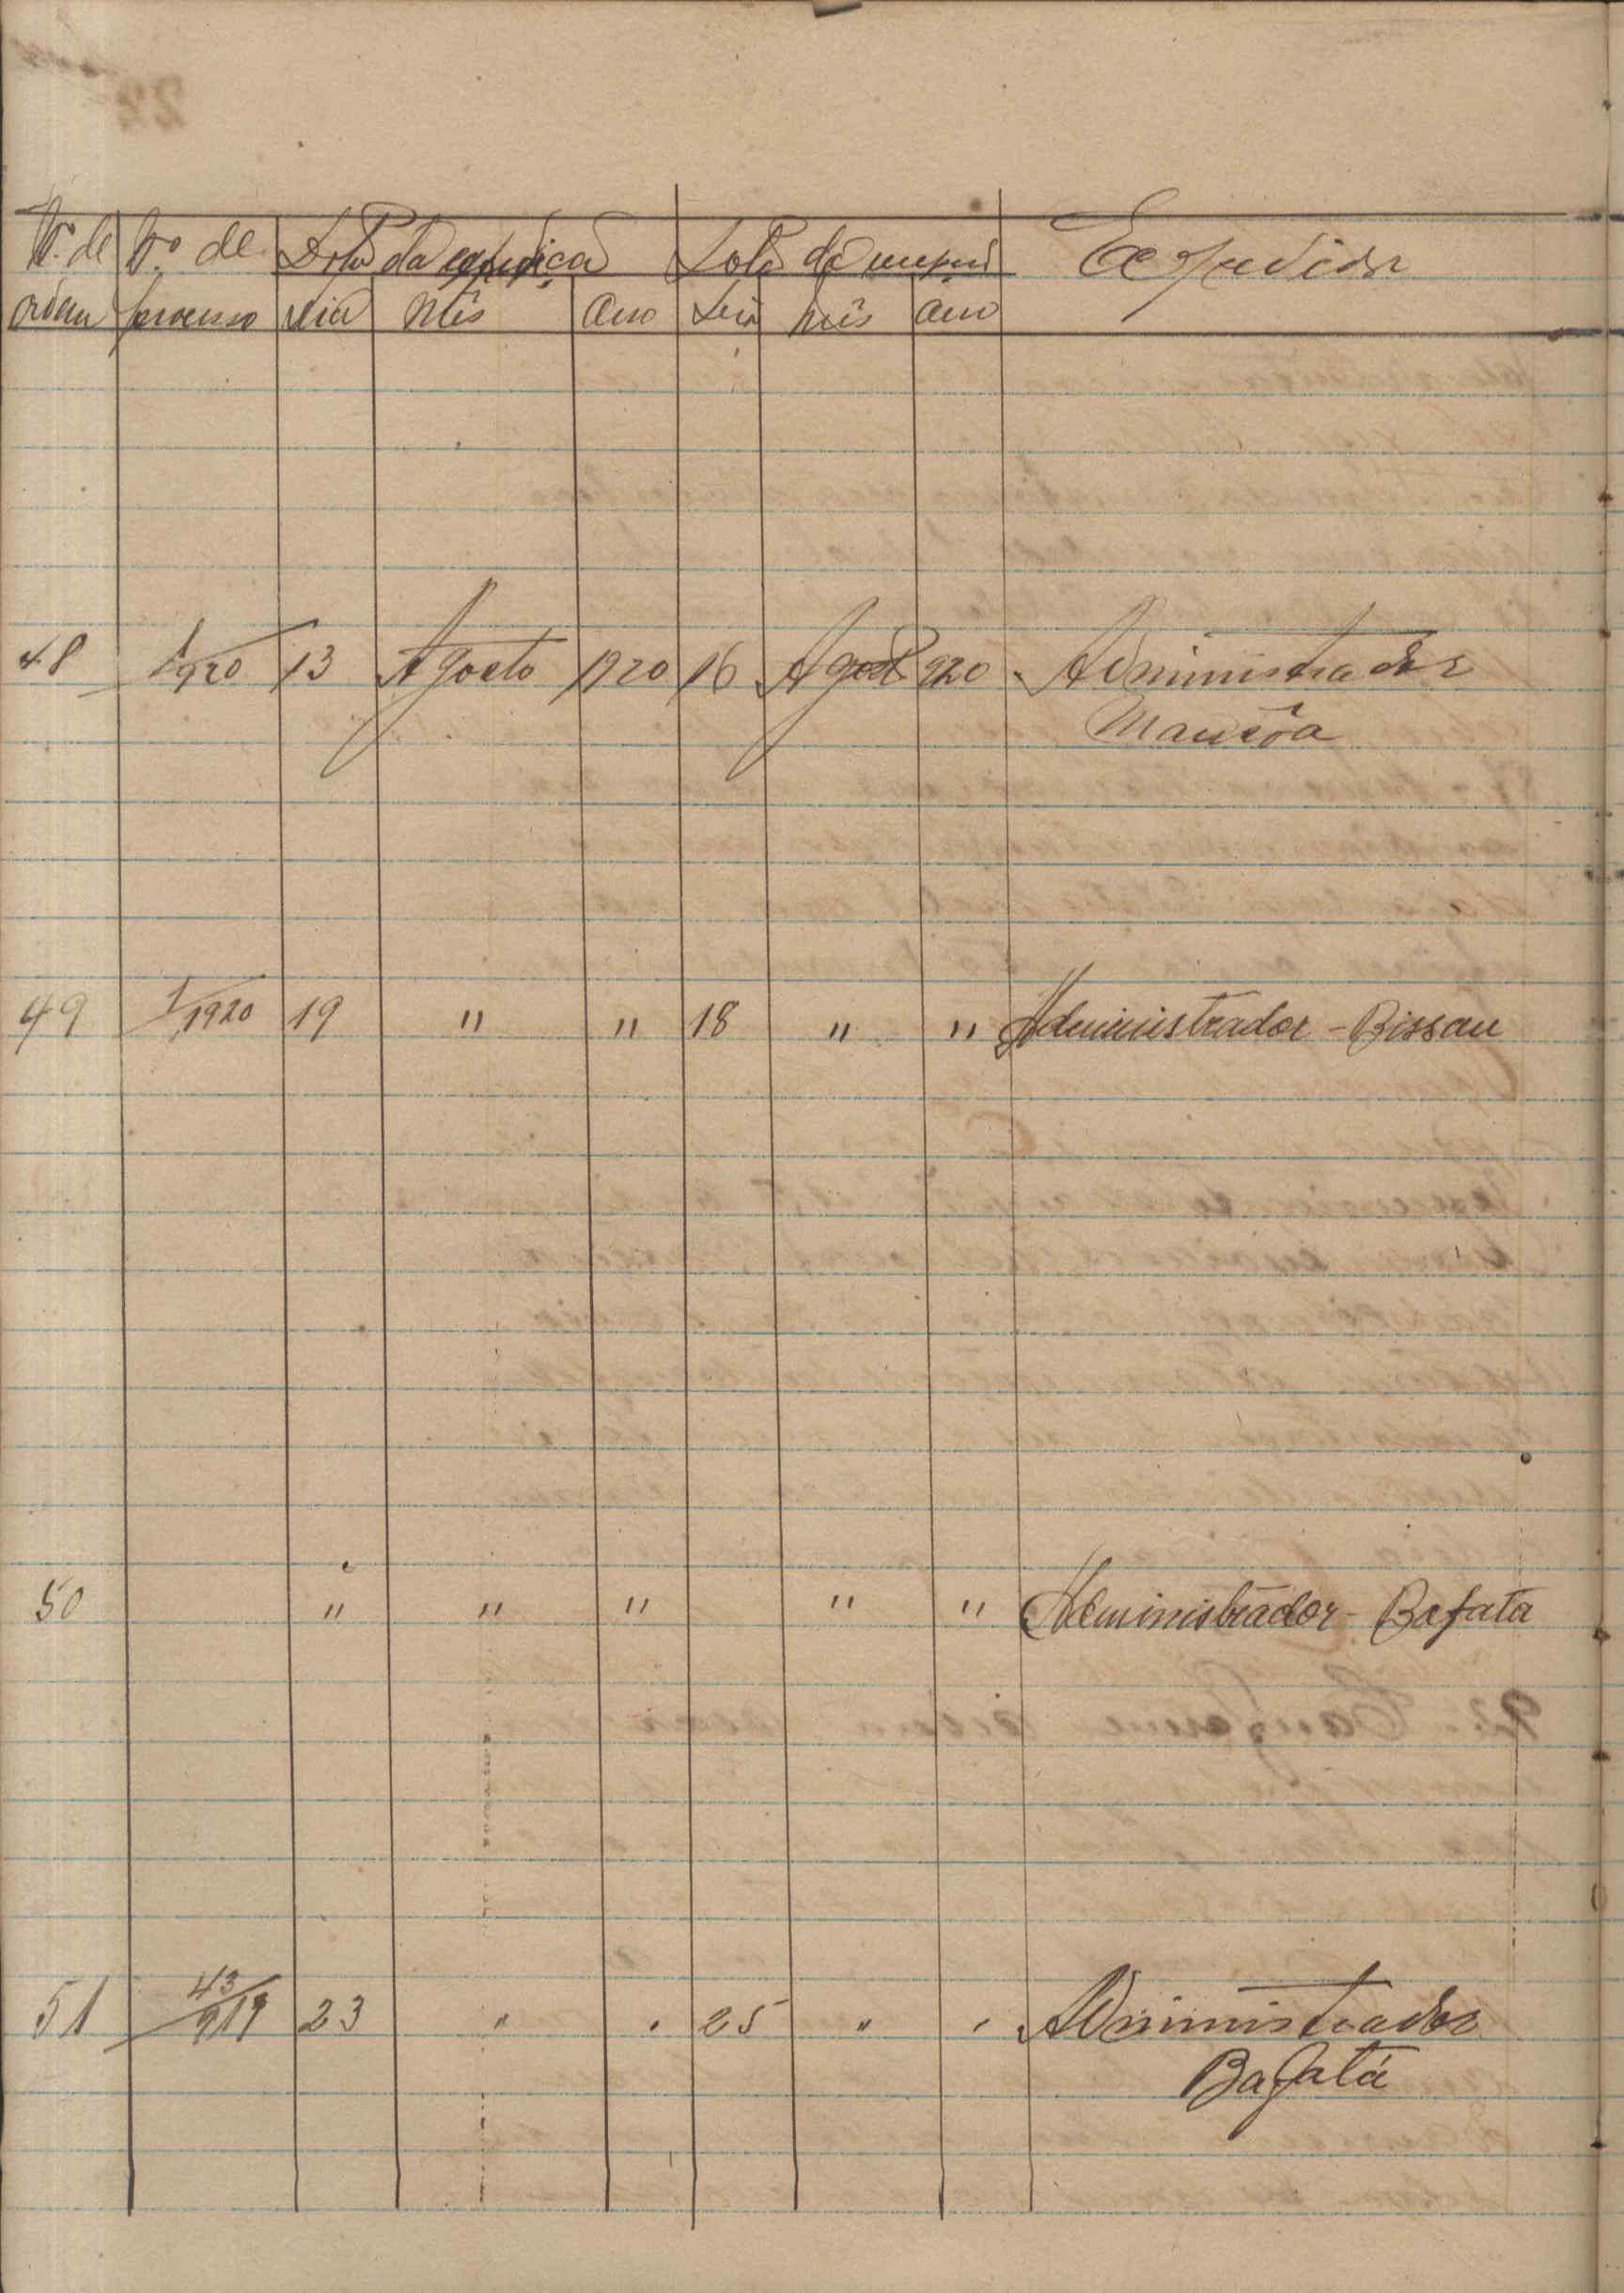 Nº de Nº de Data da expedição Data da Expedidor
ordem processo dia Mês Ano Dia Mês Ano
48 1/920 13 Agosto 1920 16 Agosto 920 Administrador
Mansôa
49 1/1920 19 " " 18 " " Administrador - Bissau
50 " " " " " Administrador - Bafata
51 43/919 23 " " 25 " " Administrador
Bafatá